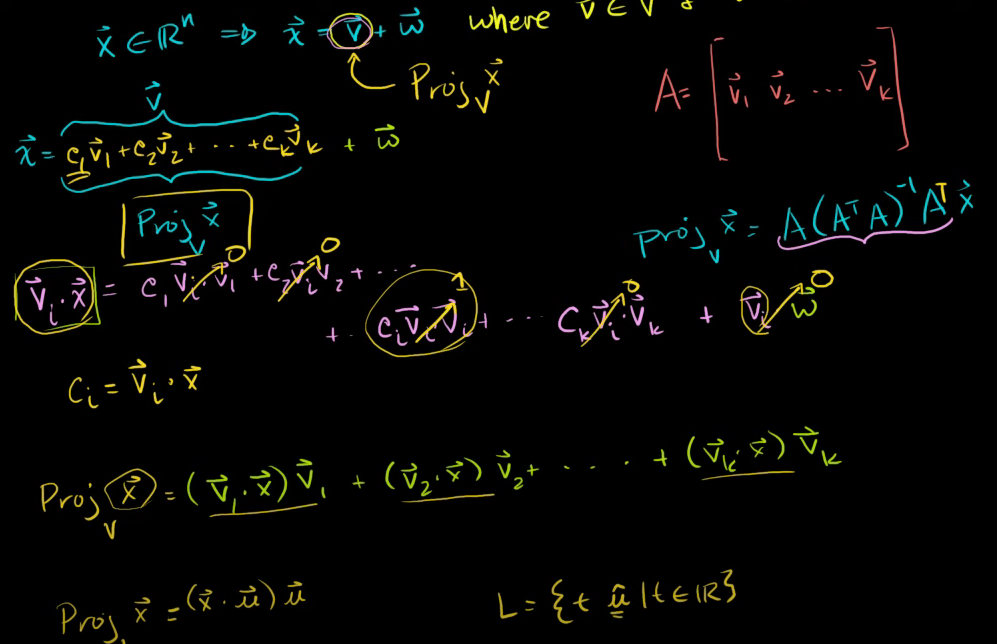 x⃗ ∈ ℝⁿ ⟹ x⃗ = v⃗ + w⃗ where v⃗ ∈ V
Proj_V x⃗
A = [v⃗₁ v⃗₂ ... v⃗ₖ]
v⃗
x⃗ = c₁v⃗₁ + c₂v⃗₂ + ... + cₖv⃗ₖ + w⃗
Proj_V x⃗
Proj_V x⃗ = A(AᵀA)⁻¹Aᵀx⃗
0 0 1 0 0
v⃗ᵢ · x⃗ = c₁v⃗ᵢ · v⃗₁ + c₂v⃗ᵢ v⃗₂ + ...
+ · cᵢv⃗ᵢ · v⃗ᵢ + ... cₖv⃗ᵢ · v⃗ₖ + v⃗ᵢ w⃗
cᵢ = v⃗ᵢ · x⃗
Proj_V x⃗ = (v⃗₁ · x⃗) v⃗₁ + (v⃗₂ · x⃗) v⃗₂ + .... + (v⃗ₖ · x⃗) v⃗ₖ
Proj x⃗ = (x⃗ · u⃗) u⃗
L = {t û | t ∈ ℝ}